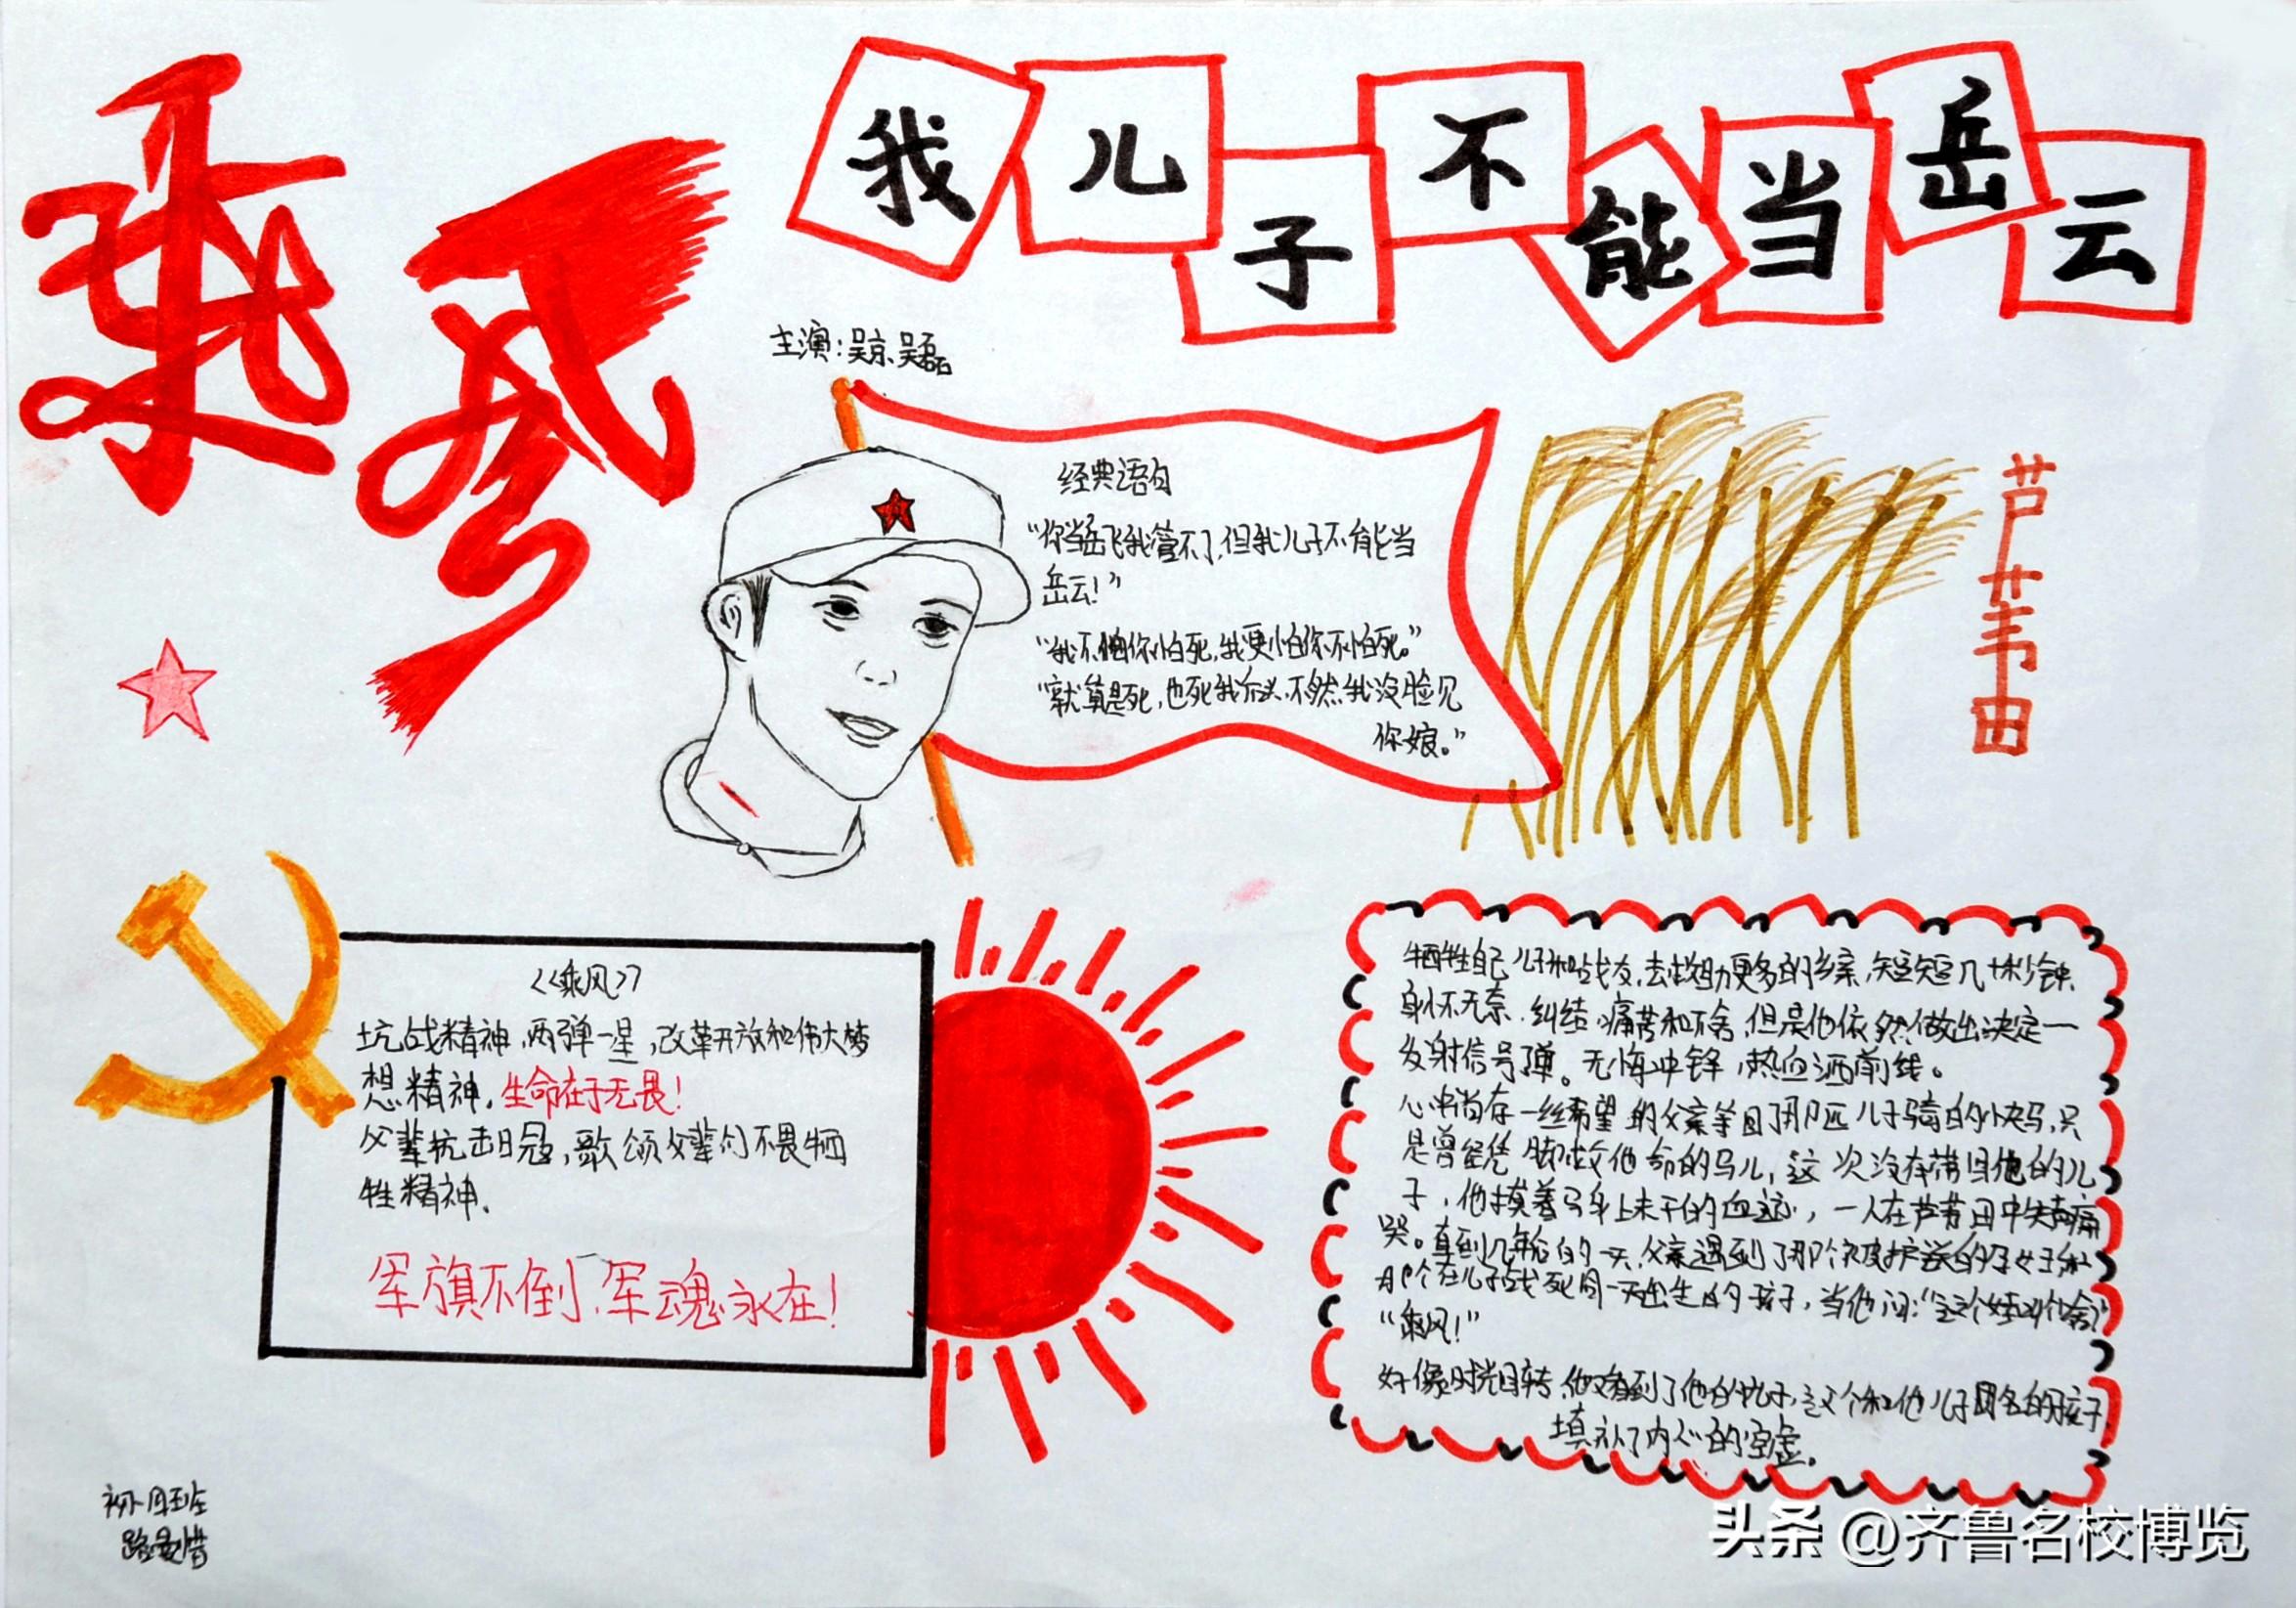 乘风
我儿子不能当岳云
主演:吴京、吴磊
经典语句
“你当岳飞我管不了,但我儿子不能当
岳云!”
“我不怕你怕死,我更怕你不怕死。”
“就算是死,也死我前头,不然我没脸见
你娘。”
芦苇田
<<乘风>>
抗战精神,两弹一星,改革开放和伟大梦
想精神,生命在于无畏!
父辈抗击日寇,歌颂父辈们不畏牺
牲精神.
军旗不倒,军魂永在!
牺牲自己儿子和战友,去救助更多的乡亲,短短几十秒钟,
身怀无奈、纠结、痛苦和不舍,但是他依然做出决定一
发射信号弹。无悔冲锋,热血洒前线。
心中尚存一丝希望的父亲等回了那匹儿子骑的小快马,只
是曾经凭脚救他命的马儿,这次没有带回他的儿
子,他摸着马身上未干的血迹,一人在芦苇田中失声痛
哭。直到几年后的一天,父亲遇到了那个被护送的孕女子和
那个在儿子战死同一天出生的孩子,当他问:“这个娃叫个啥”
“乘风!”
好像时光回转,他又看到了他的儿子,这个和他儿子同名的孩子,
填补了内心的空虚。
头条 @齐鲁名校博览